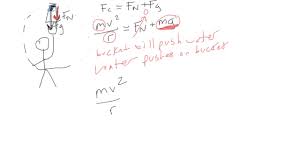 Fc = FN + Fg
FN
Fg
mv²/r = FN + ma
0
bucket will push water
water pushes on bucket
mv²/r